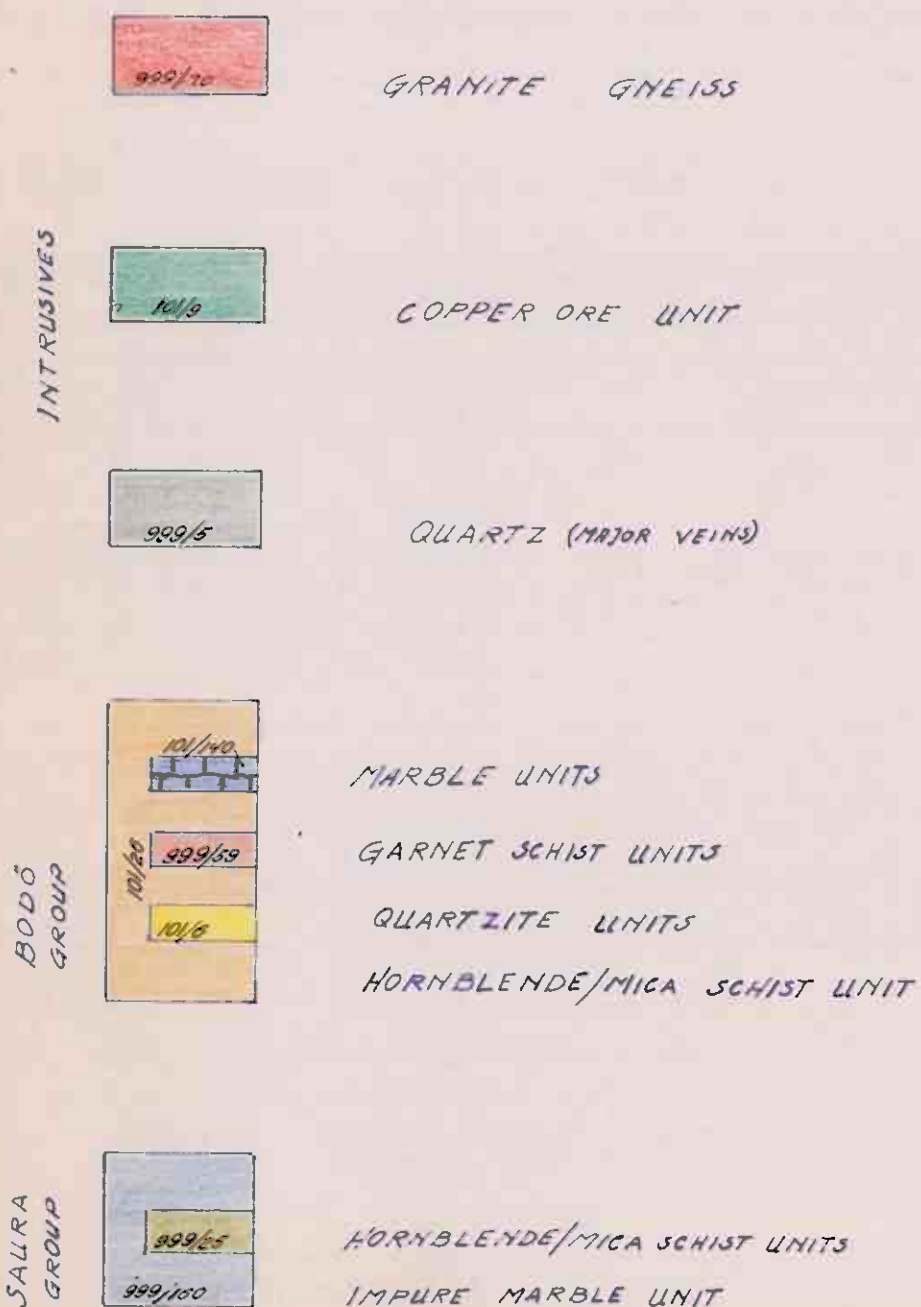 999/70
GRANITE GNEISS
INTRUSIVES
101/9
COPPER ORE UNIT
999/5
QUARTZ (MAJOR VEINS)
BODÖ
GROUP
101/20
101/140
MARBLE UNITS
999/59
GARNET SCHIST UNITS
101/6
QUARTZITE UNITS
HORNBLENDE/MICA SCHIST UNIT
SAURA
GROUP
999/25
HORNBLENDE/MICA SCHIST UNITS
999/160
IMPURE MARBLE UNIT